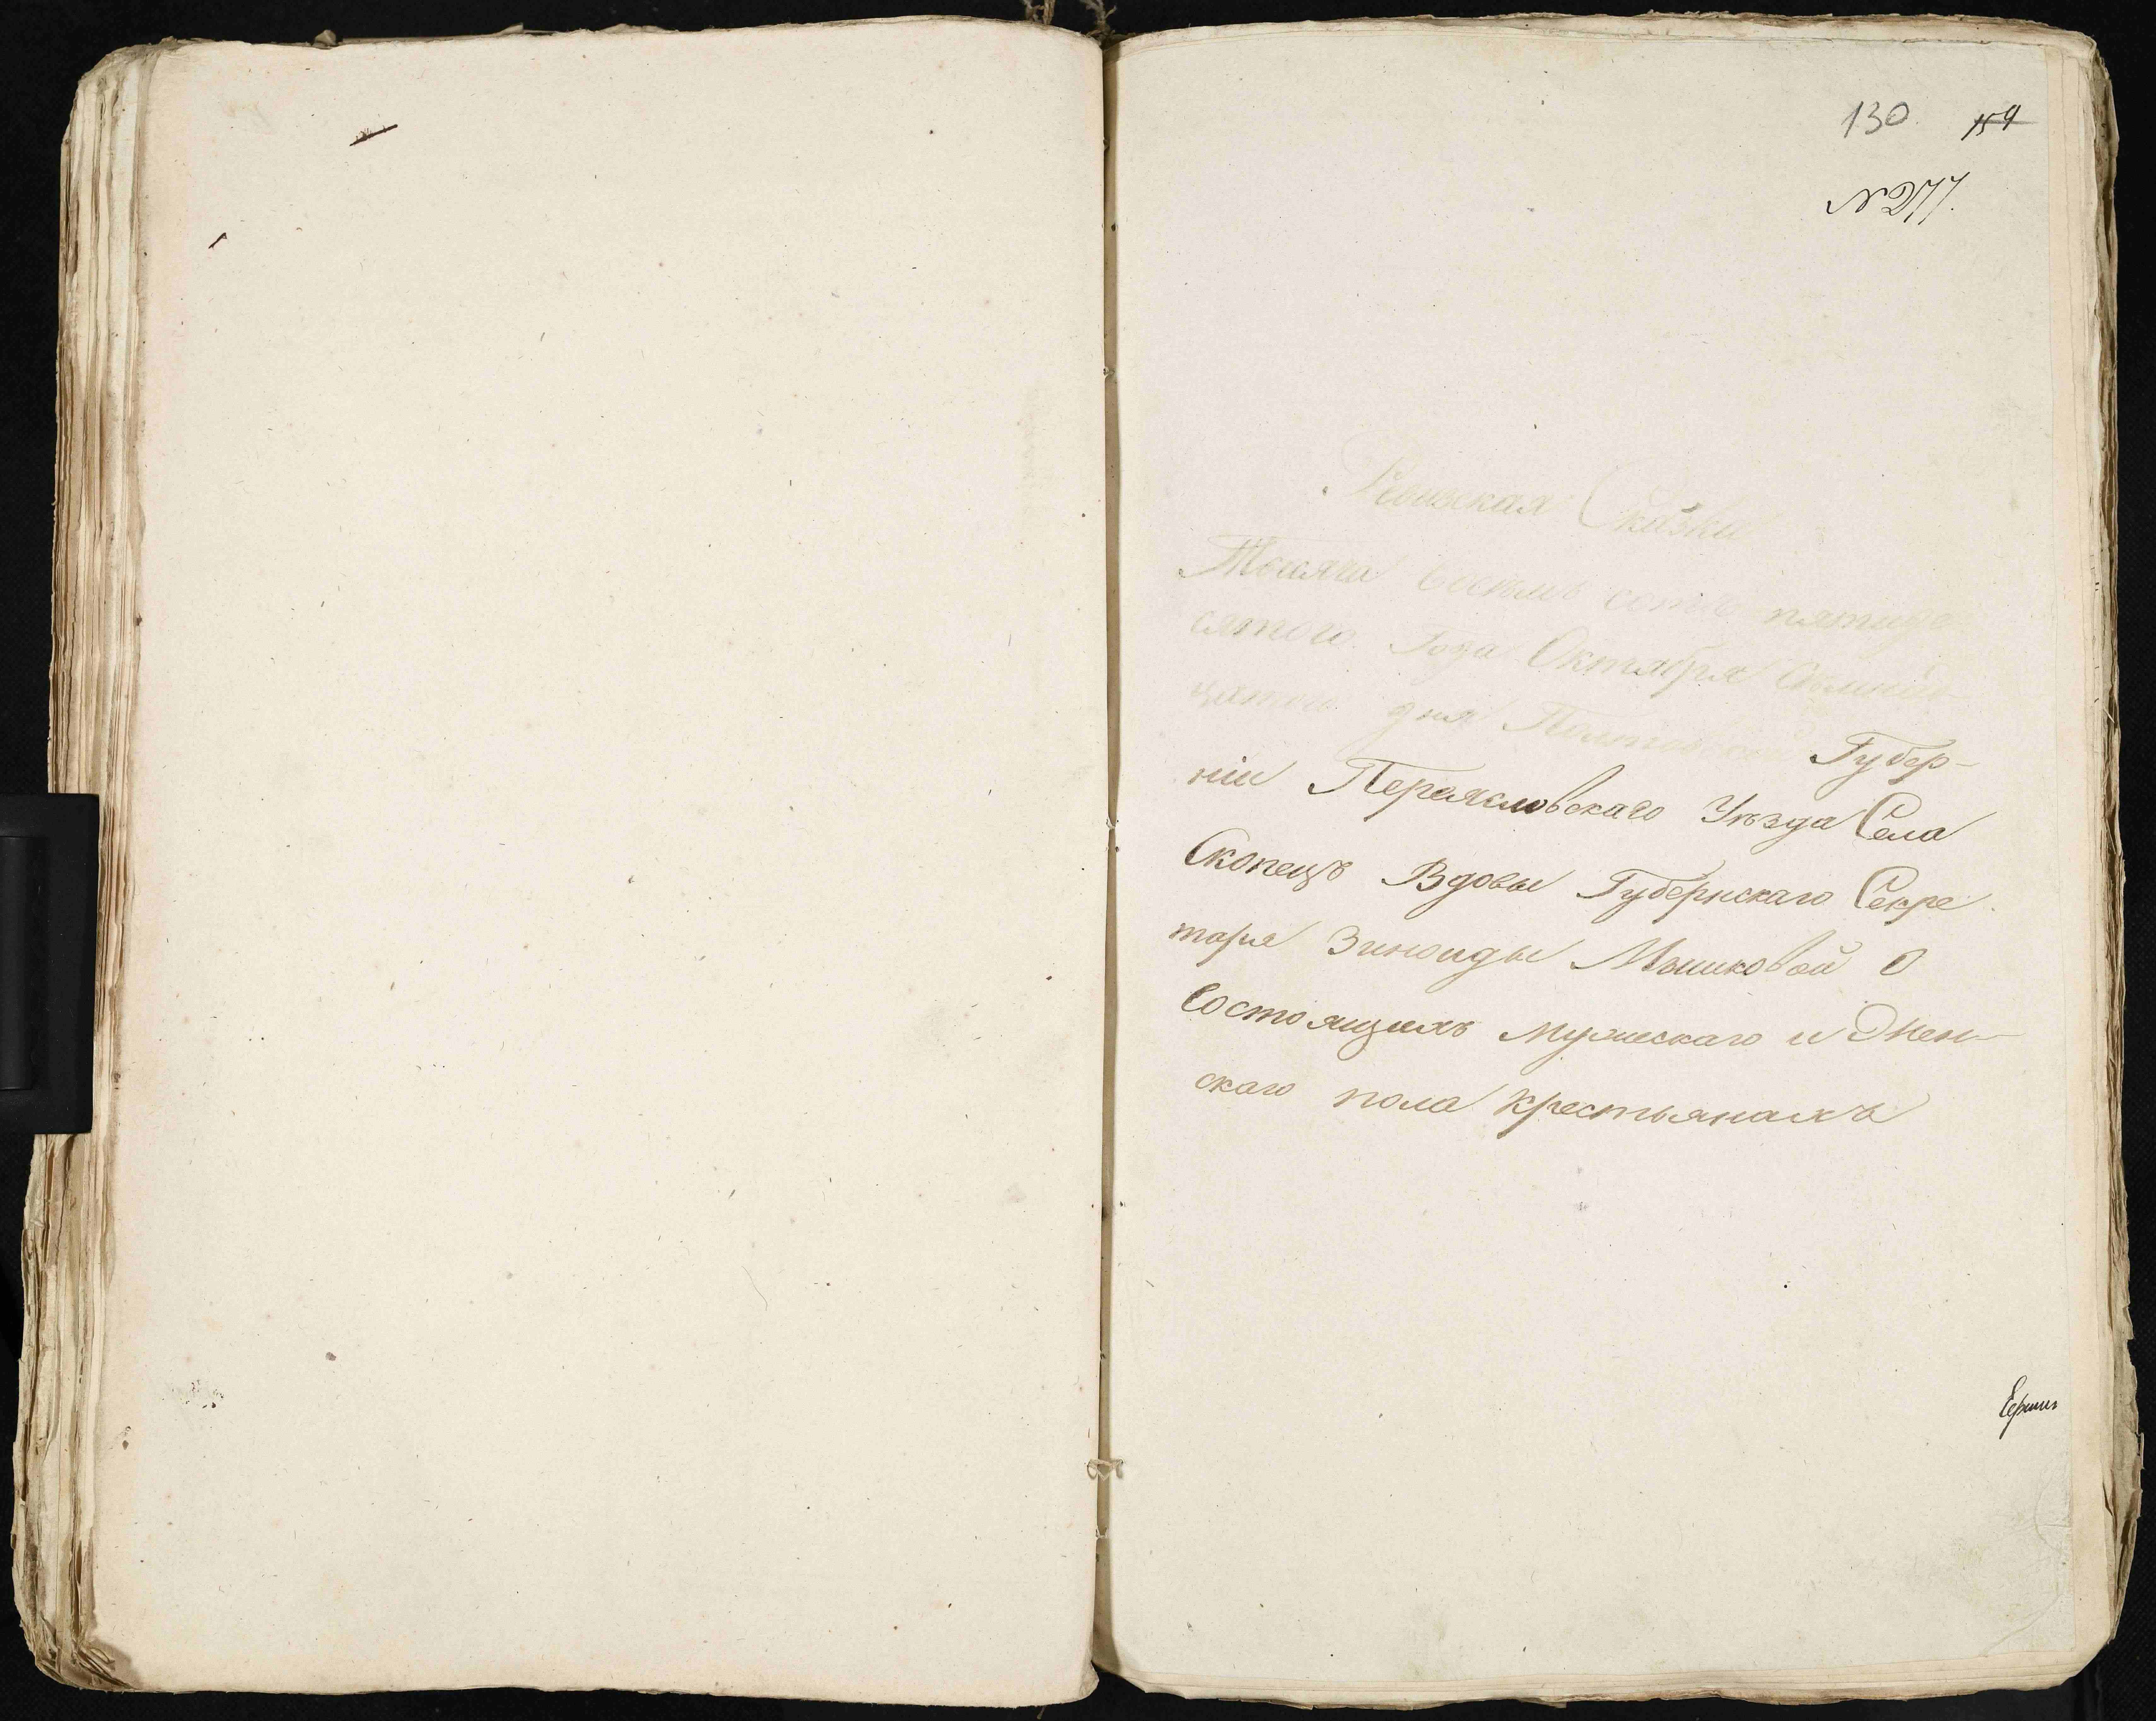 130 159
№ 277.
Ревизская Сказка
Тысяча восемь сотъ пятиде
сятого Года Октября
цатого дня Полтавской Губер-
ніи Переясловскаго Уѣзда Села
Скопецъ Вдовы Губернскаго Секре
таря Зиноиды Мышковой О
Состоящихъ мужескаго и Жен-
скаго пола крестьянахъ